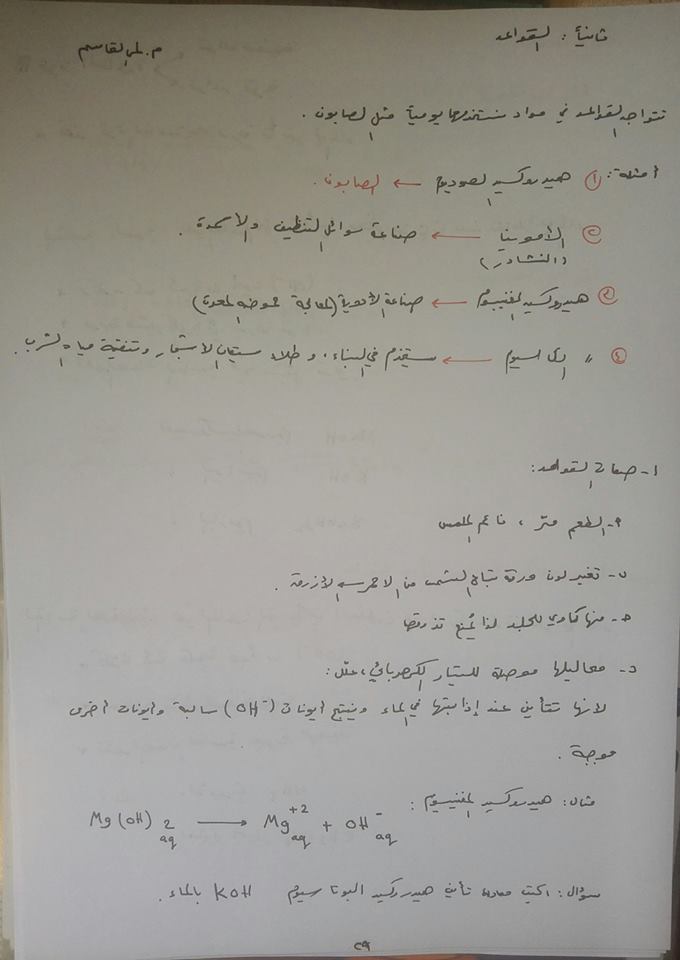 ثانياً : القواعد
م. لمى القاسم
تتواجد القواعد في مواد نستخدمها يومياً مثل الصابون .
أمثلة : ① هيدروكسيد الصوديوم ← الصابون .
② الأمونيا ← صناعة سوائل التنظيف والأسمدة .
(النشادر)
③ هيدروكسيد المغنيسيوم ← صناعة الأدوية (لمعالجة حموضة المعدة)
④ " الكالسيوم ← يستخدم في البناء ، و طلاء سيقان الاشجار وتنقية مياه الشرب .
١- صفات القواعد :
٩- الطعم مر ، ناعم الملمس
ب- تغير لون ورقة تباع الشمس من الاحمر الى الأزرق .
ج- منها كاوي للجلد لذا يُمنع تذوقها
د- محاليلها موصلة للتيار الكهربائي ، علل :
لانها تتأين عند إذابتها في الماء وينتج أيونات (OH⁻) سالبة وأيونات أخرى
موجبة .
مثال : هيدروكسيد المغنيسيوم :
Mg(OH)₂ aq → Mg⁺² aq + OH⁻ aq
سؤال : اكتب معادلة تأين هيدروكسيد البوتاسيوم KOH بالماء .
٢٩